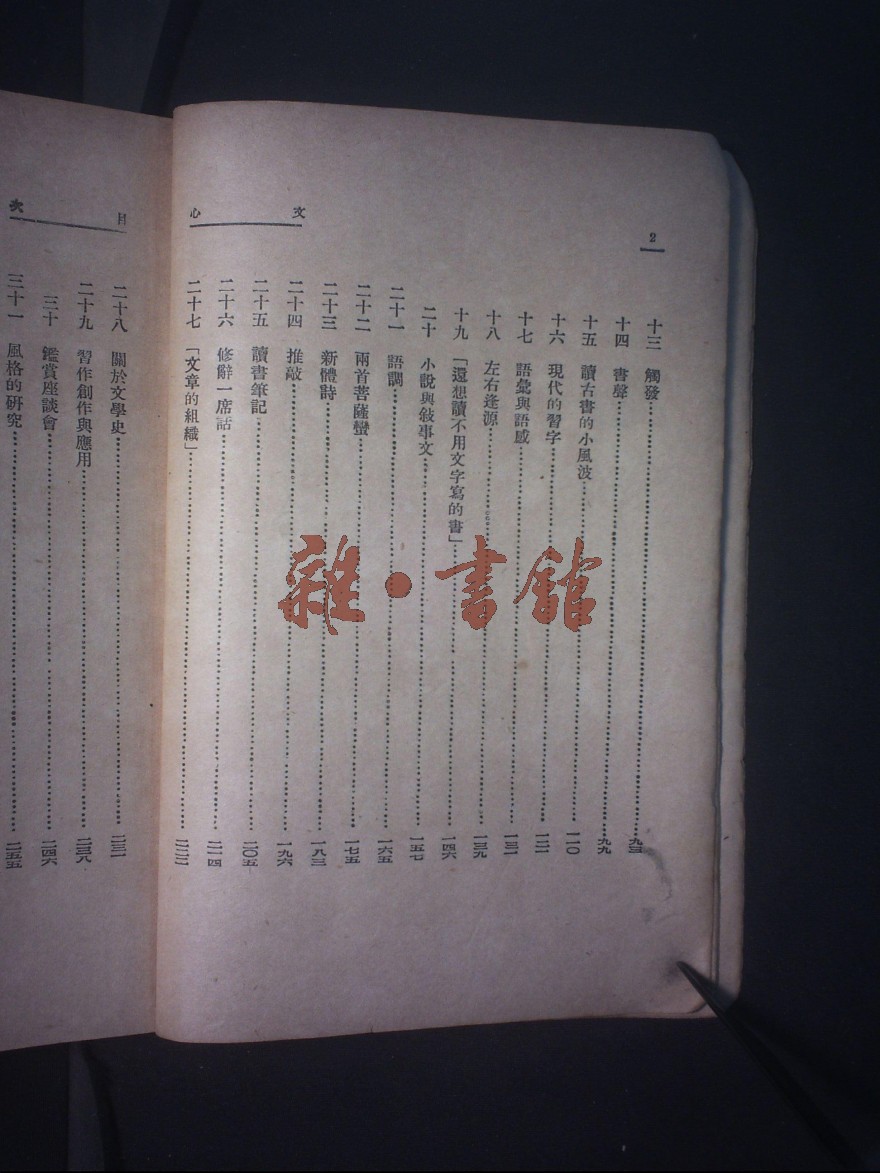 2
文心
十三 觸發 九三
十四 書聲 九九
十五 讀古書的小風波 一一〇
十六 現代的習字 一二一
十七 語彙與語感 一三一
十八 左右逢源 一三九
十九 「還想讀不用文字寫的書」 一四六
二十 小說與敍事文 一五七
二十一 語調 一六五
二十二 兩首菩薩蠻 一七五
二十三 新體詩 一八三
二十四 推敲 一九六
二十五 讀書筆記 二〇五
二十六 修辭一席話 二一四
二十七 「文章的組織」 二二三
目次
二十八 關於文學史 二三一
二十九 習作創作與應用 二三八
三十 鑑賞座談會 二四六
三十一 風格的研究 二五五
雜·書館